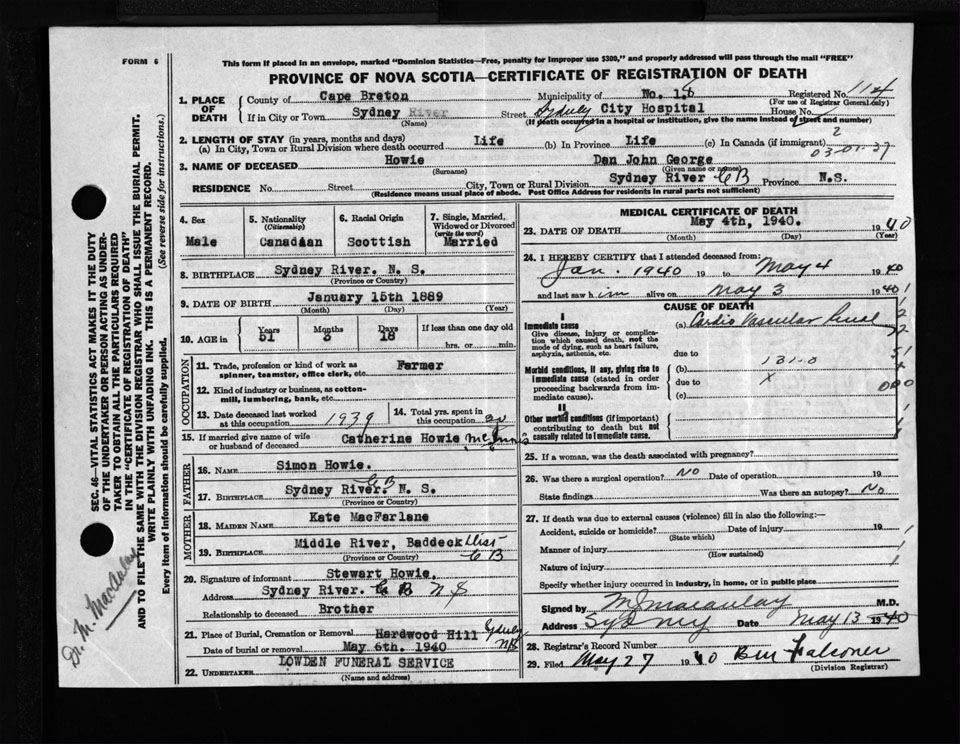 FORM 6
This form if placed in an envelope, marked "Dominion Statistics—Free, penalty for improper use $300," and properly addressed will pass through the mail "FREE"
PROVINCE OF NOVA SCOTIA—CERTIFICATE OF REGISTRATION OF DEATH
1. PLACE OF DEATH
County of Cape Breton Municipality of No. 18 Registered No. 114
(For use of Registrar General only)
If in City or Town Sydney River Street Sydney City Hospital House No.
(Name) (If death occurred in a hospital or institution, give the name instead of street and number)
2. LENGTH OF STAY (in years, months and days)
(a) In City, Town or Rural Division where death occurred Life (b) In Province Life (c) In Canada (if immigrant) 2
03-01-37
3. NAME OF DECEASED Howie Dan John George
(Surname) (Given name or names)
RESIDENCE No. Street City, Town or Rural Division Sydney River C B Province N.S.
(Residence means usual place of abode. Post Office Address for residents in rural parts not sufficient)
4. Sex
Male
5. Nationality
(Citizenship)
Canadian
6. Racial Origin
Scottish
7. Single, Married, Widowed or Divorced
(write the word)
Married
8. BIRTHPLACE Sydney River, N. S.
(Province or Country)
9. DATE OF BIRTH January 15th 1889
(Month) (Day) (Year)
10. AGE in
Years Months Days If less than one day old
51 3 18 hrs. or min.
OCCUPATION
11. Trade, profession or kind of work as spinner, teamster, office clerk, etc. Farmer
12. Kind of industry or business, as cotton-mill, lumbering, bank, etc.
13. Date deceased last worked at this occupation 1939
14. Total yrs. spent in this occupation
15. If married give name of wife or husband of deceased Catherine Howie
FATHER
16. NAME Simon Howie.
17. BIRTHPLACE Sydney River, C B N. S.
(Province or Country)
MOTHER
18. MAIDEN NAME Kate MacFarlane
19. BIRTHPLACE Middle River, Baddeck Dist C B
(Province or Country)
20. Signature of informant Stewart Howie.
Address Sydney River. C B N S
Relationship to deceased Brother
21. Place of Burial, Cremation or Removal Hardwood Hill Sydney N S
Date of burial or removal May 6th. 1940
22. UNDERTAKER LOWDEN FUNERAL SERVICE
(Name and address)
MEDICAL CERTIFICATE OF DEATH
23. DATE OF DEATH May 4th, 1940. 1940
(Month) (Day) (Year)
24. I HEREBY CERTIFY that I attended deceased from:
Jan. 1940 19 to May 4 1940
and last saw him alive on May 3 1940
CAUSE OF DEATH
I
Immediate cause
Give disease, injury or complication which caused death, not the mode of dying, such as heart failure, asphyxia, asthenia, etc.
(a) Cardio Vascular Renal
due to
Morbid conditions, if any, giving rise to immediate cause (stated in order proceeding backwards from immediate cause).
(b) 131-0
due to X
(c)
II
Other morbid conditions (if important) contributing to death but not causally related to immediate cause.
25. If a woman, was the death associated with pregnancy?
26. Was there a surgical operation? No Date of operation 19
State findings Was there an autopsy? No
27. If death was due to external causes (violence) fill in also the following:—
Accident, suicide or homicide? Date of injury 19
(State which)
Manner of injury
(How sustained)
Nature of injury
Specify whether injury occurred in industry, in home, or in public place
Signed by M J Macaulay M.D.
Address Sydney Date May 13 1940
28. Registrar's Record Number
29. Filed May 27 1940 Falconer
(Division Registrar)
SEC. 46—VITAL STATISTICS ACT MAKES IT THE DUTY
OF THE UNDERTAKER OR PERSON ACTING AS UNDER-
TAKER TO OBTAIN ALL THE PARTICULARS REQUIRED
IN THE "CERTIFICATE OF REGISTRATION OF DEATH"
AND TO FILE THE SAME WITH THE DIVISION REGISTRAR WHO SHALL ISSUE THE BURIAL PERMIT.
WRITE PLAINLY WITH UNFADING INK. THIS IS A PERMANENT RECORD.
Every item of Information should be carefully supplied. (See reverse side for instructions.)
Dr. M. Macaulay